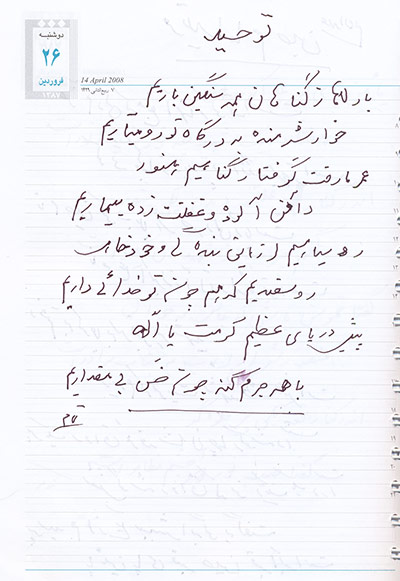 توحید
دوشنبه
۲۶
فروردین
۱۳۸۷
14 April 2008
۷ ربیع‌الثانی ۱۴۲۹
بارالها ز گناهان همه سنگین باریم
خوار شرمنده به درگاه تو رو میآریم
عمر ما رفت گرفتار گناهیم هنوز
دامن آلوده و غفلت زده بیماریم
رو سیاهیم از
رو سفیدیم که هم چون تو خدائی داریم
پیش دریای عظیم کرمت یا الله
با همه جرم گنه چون خس بی مقداریم